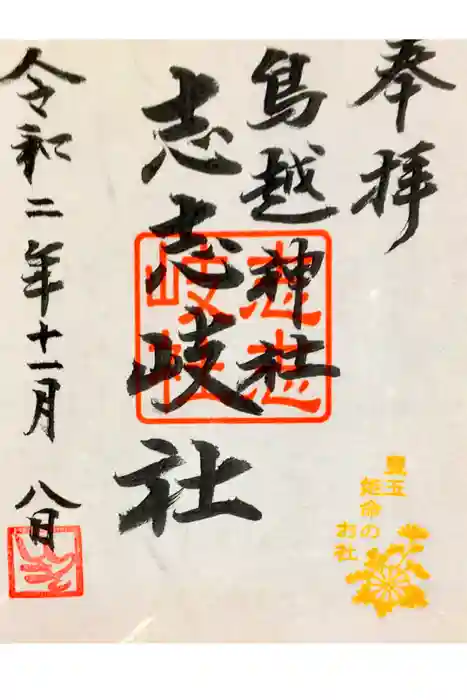 奉拝
鳥越神社
志志岐社
令和二年十一月 八日
志志
岐社
豊玉
姫命の
お社